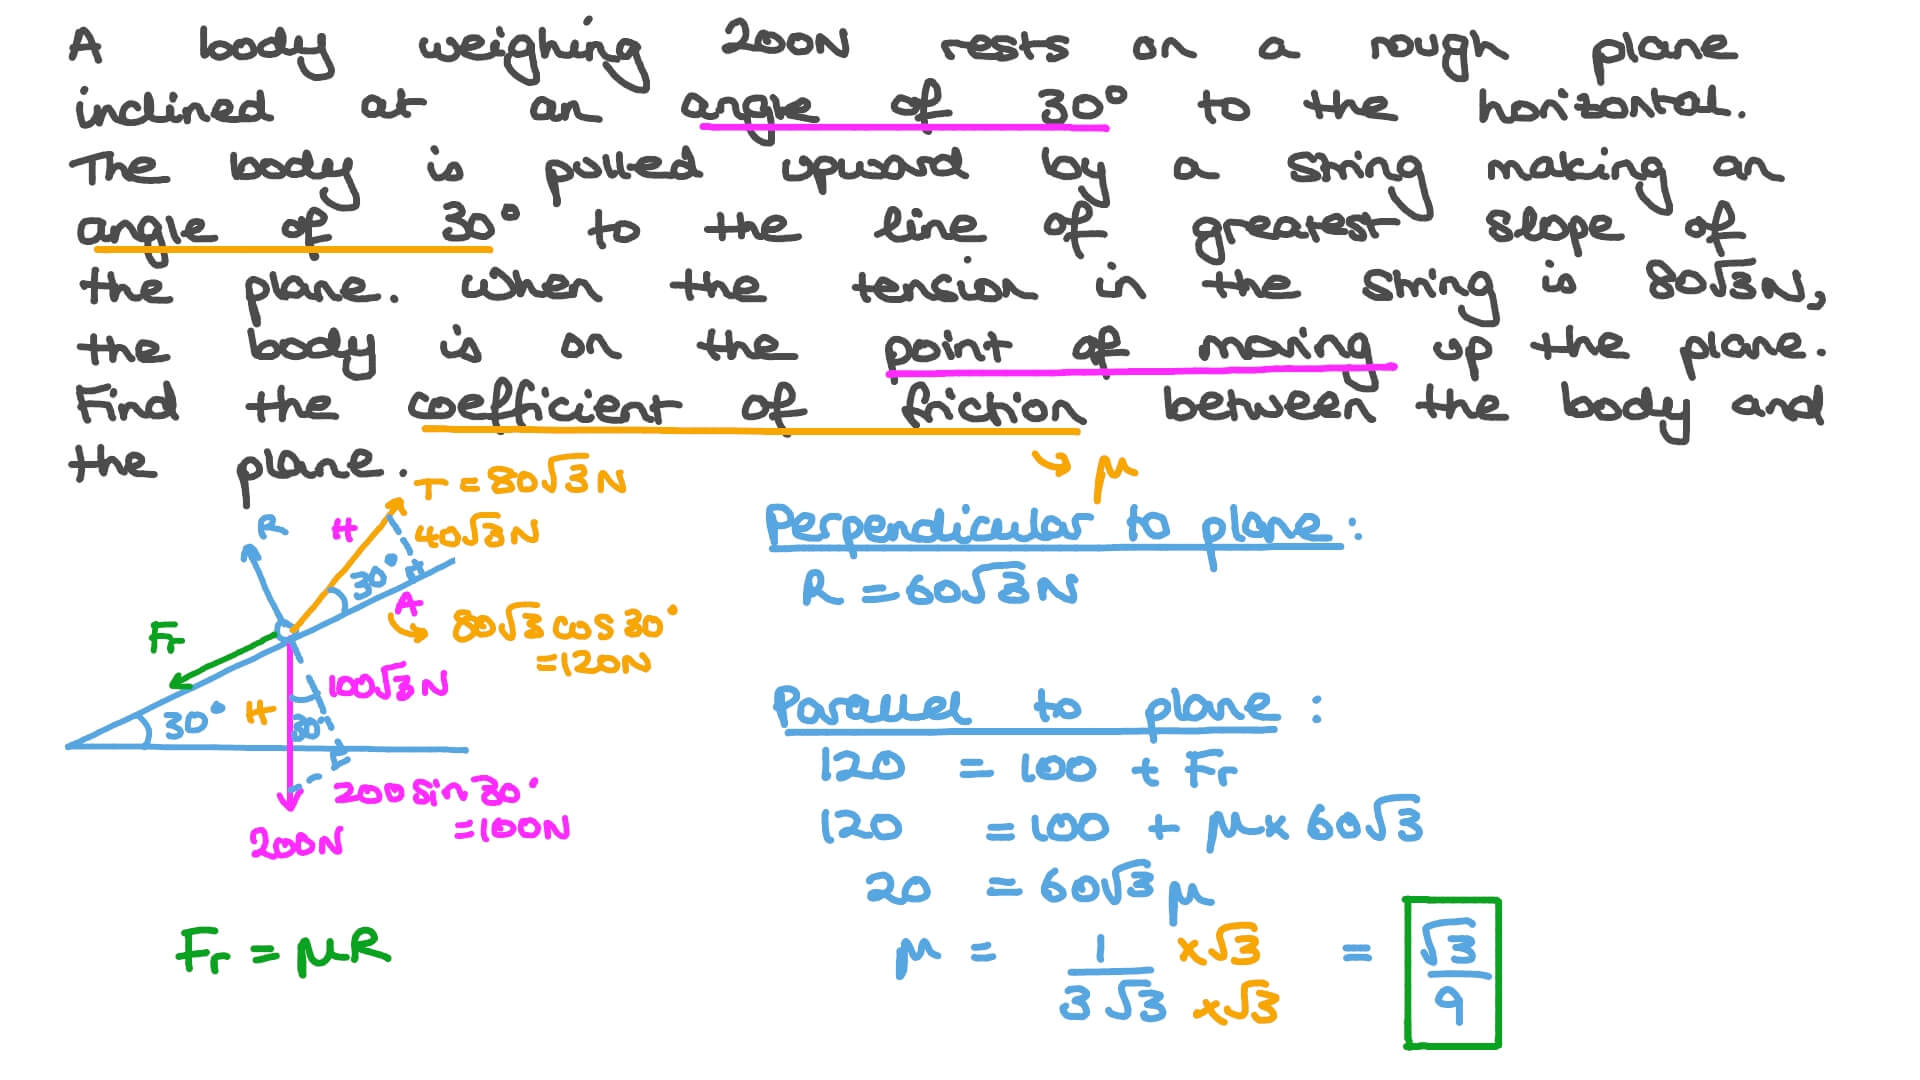 A body weighing 200N rests on a rough plane
inclined at an angle of 30° to the horizontal.
The body is pulled upward by a string making an
angle of 30° to the line of greatest slope of
the plane. When the tension in the string is 80√3N,
the body is on the point of moving up the plane.
Find the coefficient of friction between the body and
the plane.
μ
T = 80√3N
R
H
40√3N
30°
A
80√3 cos 30°
= 120N
Fr
100√3N
30°
H
30°
200 sin 30°
= 100N
200N
Fr = μR
Perpendicular to plane:
R = 60√3N
Parallel to plane:
120 = 100 + Fr
120 = 100 + μ x 60√3
20 = 60√3 μ
μ = 1/3√3 x√3/x√3 = √3/9